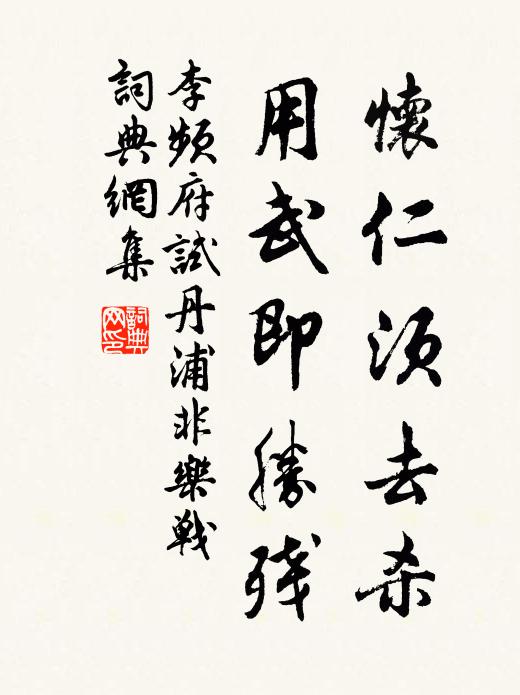 懷仁須去杀
用武即勝残
李頻府試丹浦非樂戦
詞典網集
詞典
网印